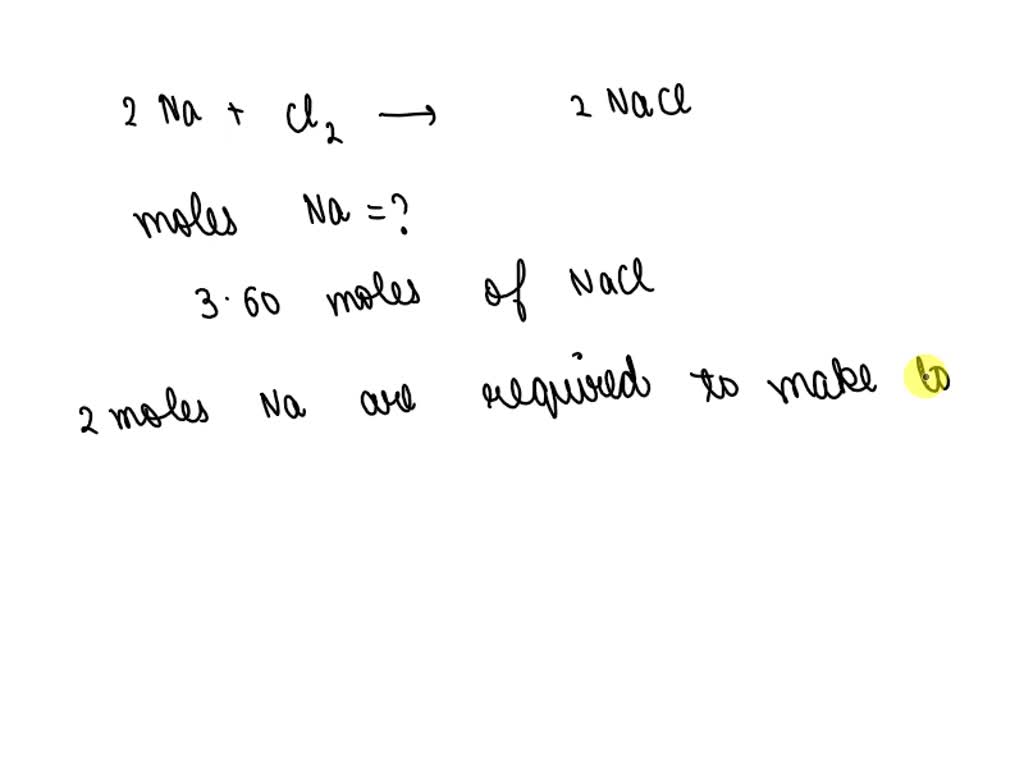 2 Na + Cl2 → 2 NaCl
moles Na = ?
3.60 moles of NaCl
2 moles Na are required to make to